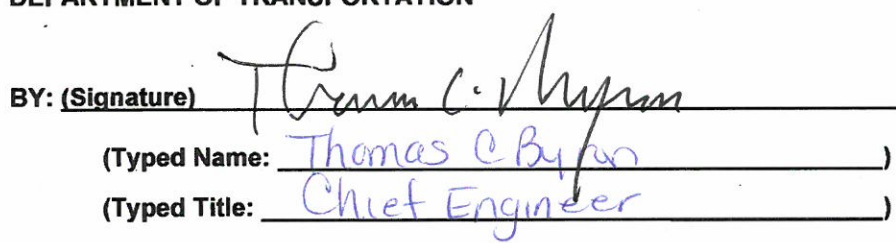 DEPARTMENT OF TRANSPORTATION
BY: (Signature) Thomas C. Byron
(Typed Name: Thomas C Byron)
(Typed Title: Chief Engineer)